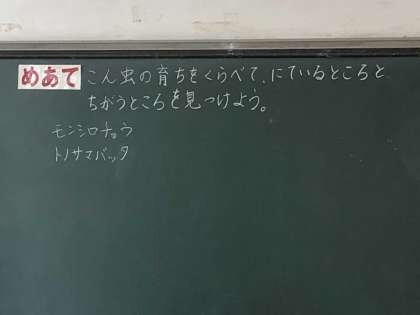 めあて こん虫の育ちをくらべて、にているところと
ちがうところを見つけよう。
モンシロチョウ
トノサマバッタ